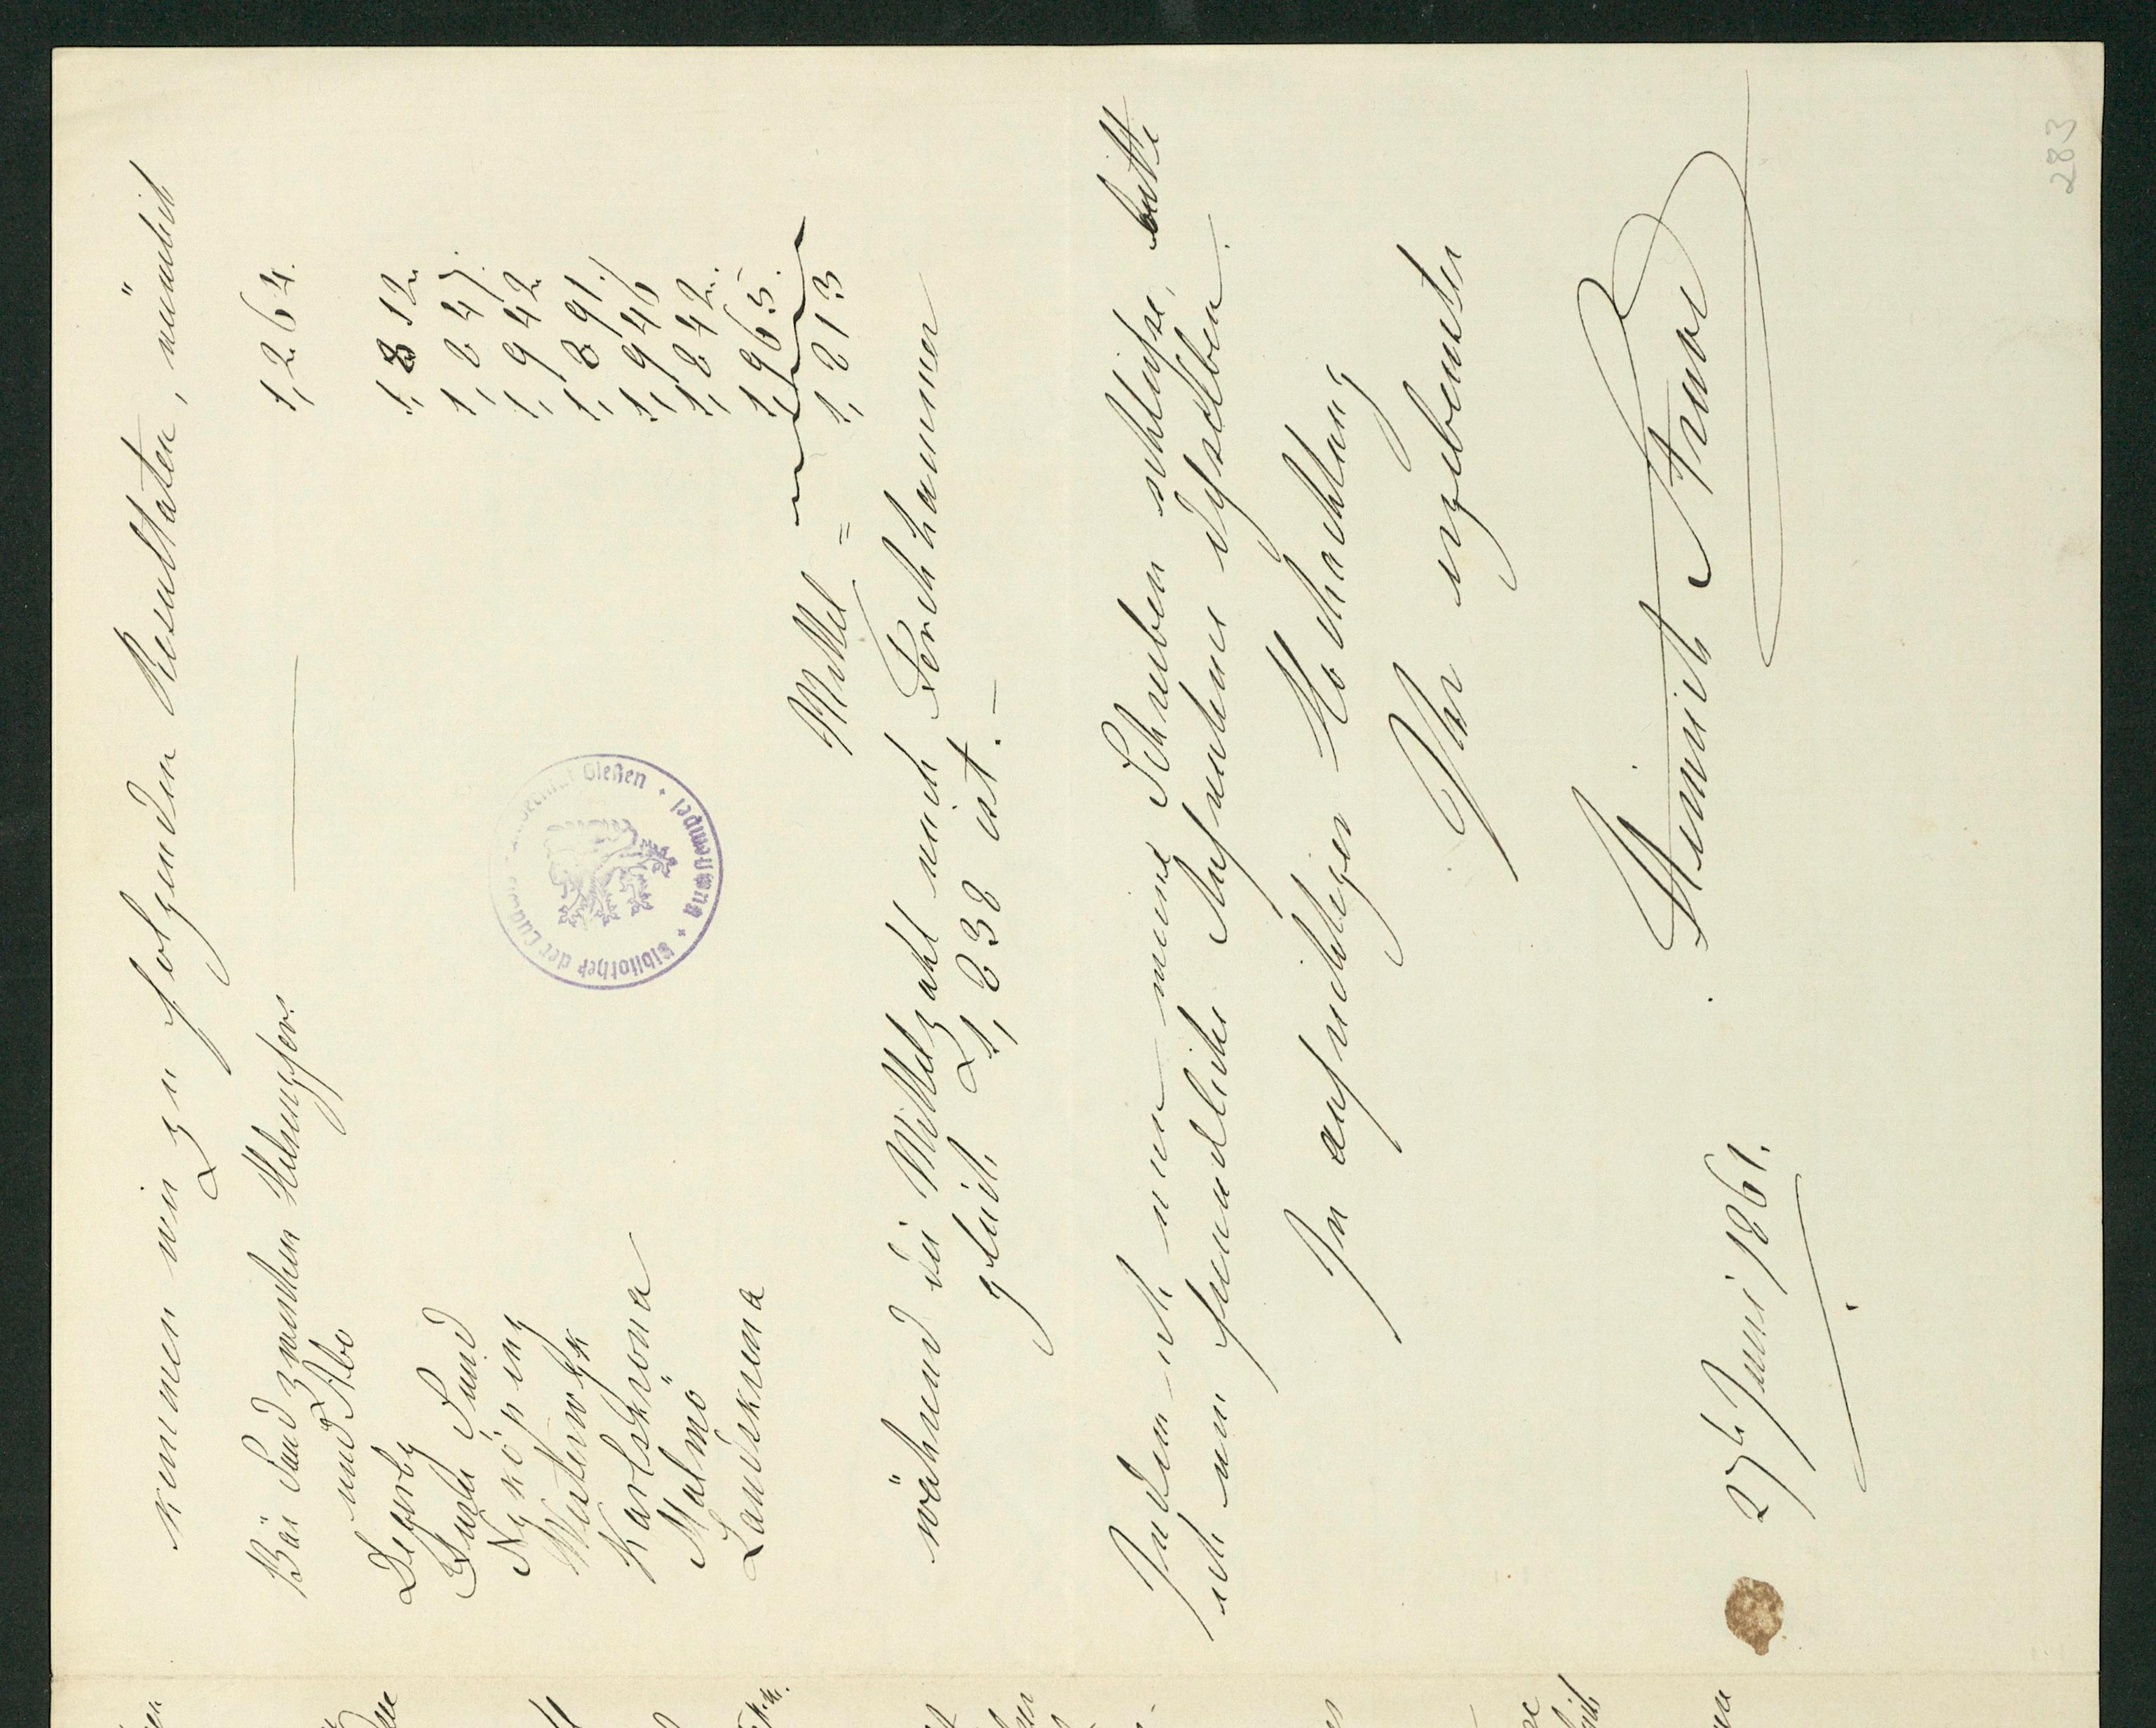 kommen wir zu folgenden Resultaten, nämlich
Bär Sund zwischen Helsingfors
und Abo
1,264.
Degerby 1,812.
Sund 1,847.
Nyköping 1,942
Westerwyk 1,891.
Karlskrona 1,946
Malmö 1,842.
Landskrona 1,965.
Mittel = 1,813
während die Mittelzahl nach Forchhammer
gleich 1,838 ist. —
Indem ich nun mein Schreiben schliesse, bitte
ich um freundliche Aufnahme desselben.
In aufrichtiger Hochachtung
Ihr ergebenster
Heinrich Struve
27 Juni 1861.
283
Bibliothek der Gießen